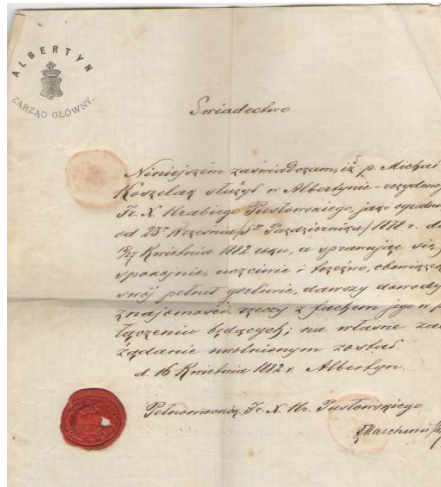 ALBERTYN
ZARZĄD GŁÓWNY.
Świadectwo
Niniejszém zaświadczam, iż p. Michał
Koszelak służył w Albertynie-
Fr. X. Hrabiego Pusłowskiego, jako
od 28º Września/ Października/1878 r. do
Kwietnia 1882 roku, a sprawując się
spokojnie, uczciwie i trzeźwo,
swój pełnił gorliwie, dawszy dowody
znajomości rzeczy z fachem jego w
łączeniu będących; na własne
żądanie uwolnionym został
d. 16 Kwietnia 1882 r. Albertyn.
Pełnomocnik Fr. X. Hr. Pusłowskiego